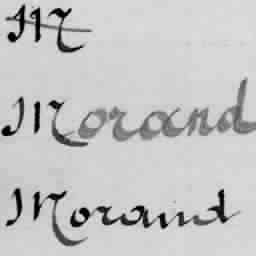 M
Morand
Morand